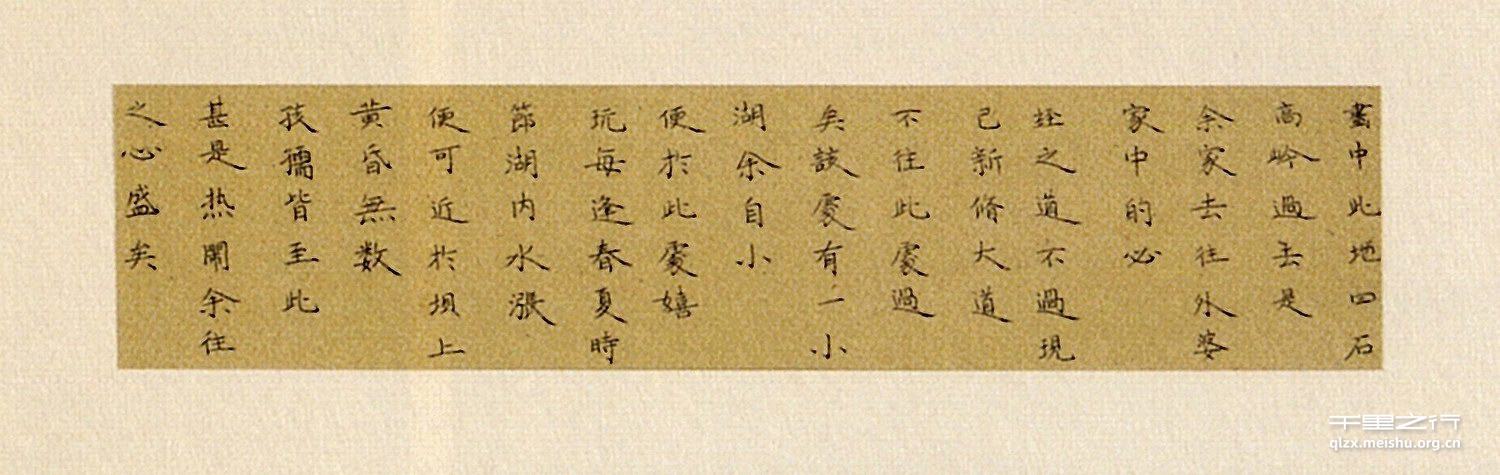 畫中此地四石
高岭過去是
余家去往外婆
家中的必
經之道不過現
已新脩大道
不往此處過
矣該處有一小
湖余自小
便於此處嬉
玩每逢春夏時
節湖内水漲
便可近於坝上
黄昏無数
孩孺皆至此
甚是热闹余往
之心盛矣
千里之行
qlzx.meishu.org.cn